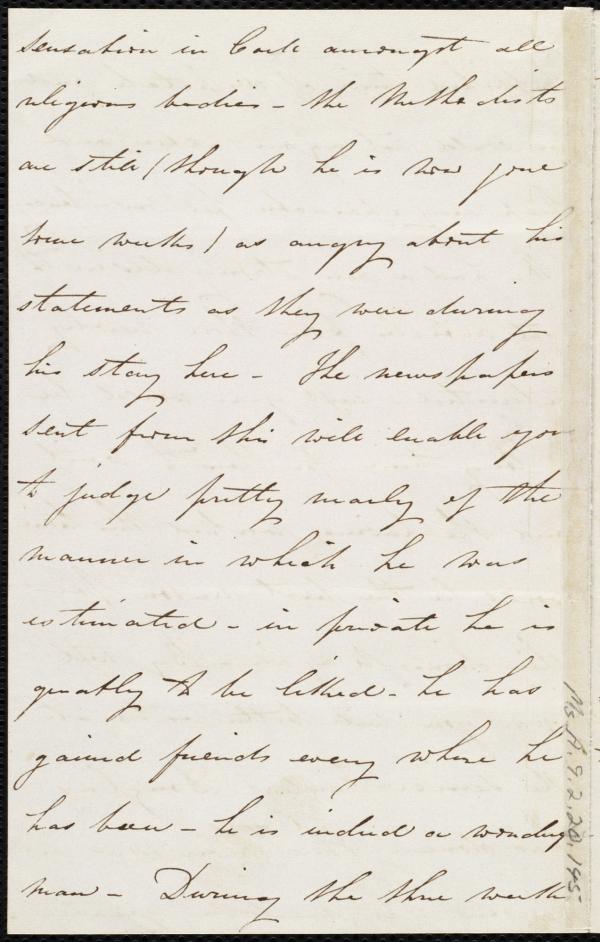 sensation in Cork amongst all
religious bodies - the Methodists
are still (though he is now gone
some weeks) as angry about his
statements as they were during
his stay here - The newspapers
sent from this will enable you
to judge pretty nearly of the
manner in which he was
estimated - in private he is
greatly to be liked - he has
gained friends every where he
has been - he is indeed a wonderful
man - During the three weeks
Ms. A. 9. 2. 20, 145